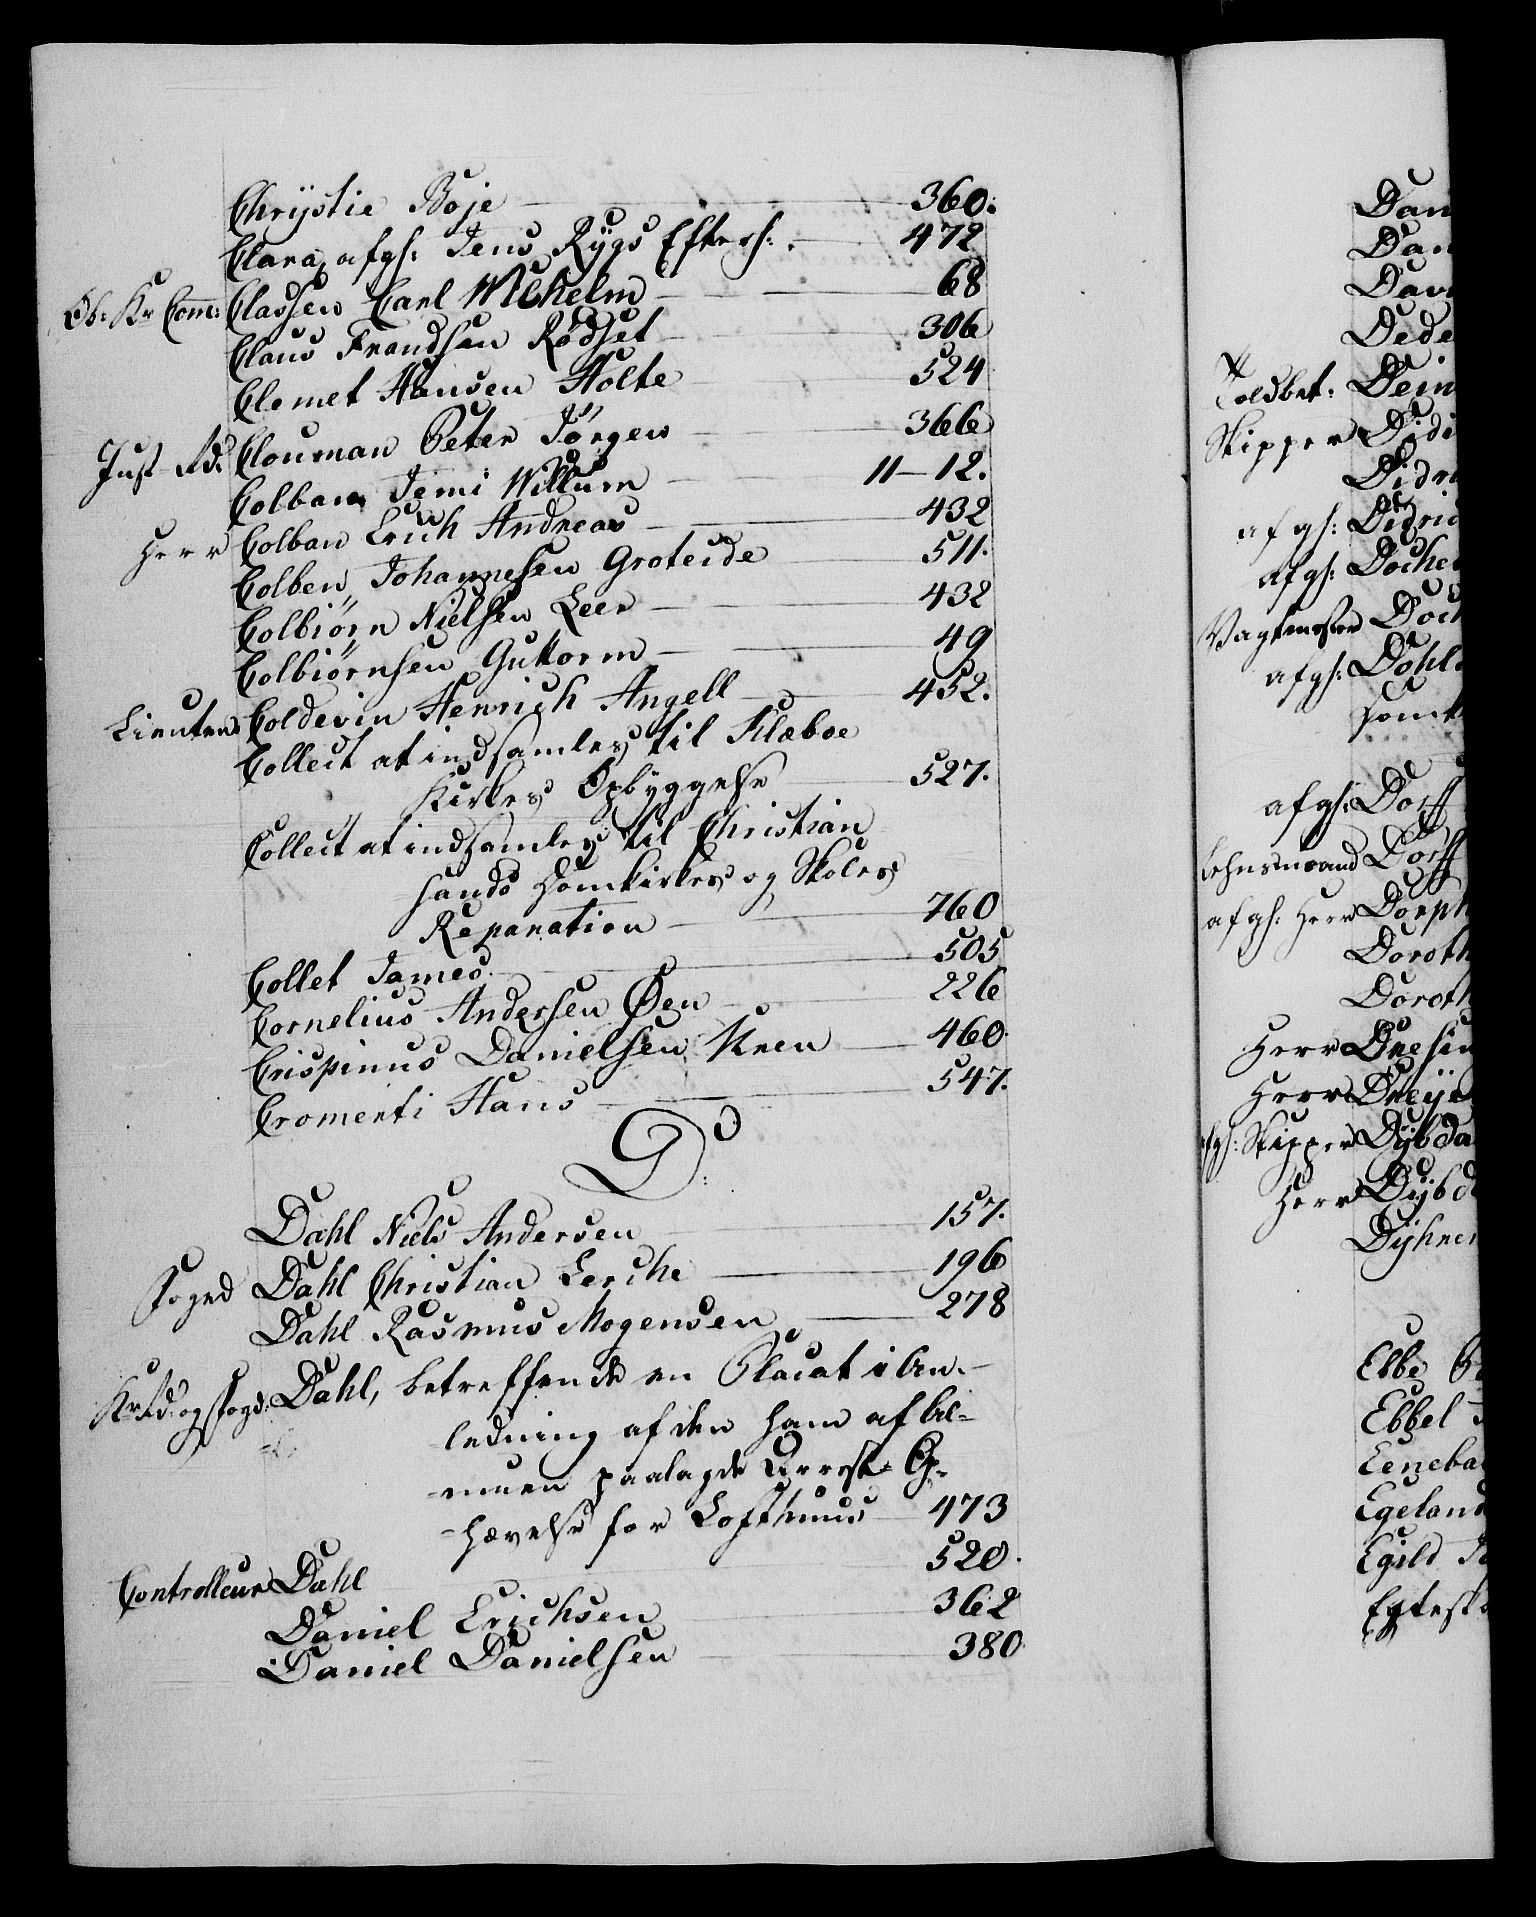 Chrÿstie Boje 360.
Clara, afgh: Jens Rÿgs Efterh: 472
Ob: Kr Comm: Classen Carl Wilhelm 68
Claus Frandsen Rødset 306
Clemet Hansen Holte 524
Just Rd: Clouman Peter Jörgen 366
Colban Jemi Willum 11-12.
Herr Colban Erich Andreas 432
Colben Johannesen Groteide 511.
Colbiörn Nielsen Leer 432
Colbiörnsen Guttorm 49
Lieuten: Coldevin Henrich Angell 452.
Collect at indsamles til Klæboe
Kirkes Opbyggelse 527.
Collect at indsamles til Christian
sands Domkirkes og Skoles
Reparation 760
Collet James 505
Cornelius Andersen Øen 226
Crispinus Danielsen Kneu 460.
Cromenti Hans 547.
D:
Dahl Niels Andersen 157.
Foged Dahl Christian Lerche 196
Dahl Rasmus Mogensen 278
Kr Rd: og Foged: Dahl, betreffende en Placat i An-
ledning af den ham af Al-
muen paalagde Arrest-O-
hævelse for Lofthuus 473
Controlleur Dahl 520.
Daniel Erichsen 362
Daniel Danielsen 380.
Dan
Dan
Dede
Toldbet: Dein
Skipper Didr
Didr
afgh: Didric
afgh:
Vagtmester
afgh: Dohl
afgh: Dorff
Lehnsmand Dorff
afgh: Herr Dorph
Doroth
Doroth
Herr
Herr Dreÿe
afgh: Skipper Dÿbda
Herr Dÿbd
Dÿhren
Ebbe
Ebbel
Eeneba
Egeland
Egild
Egtesk